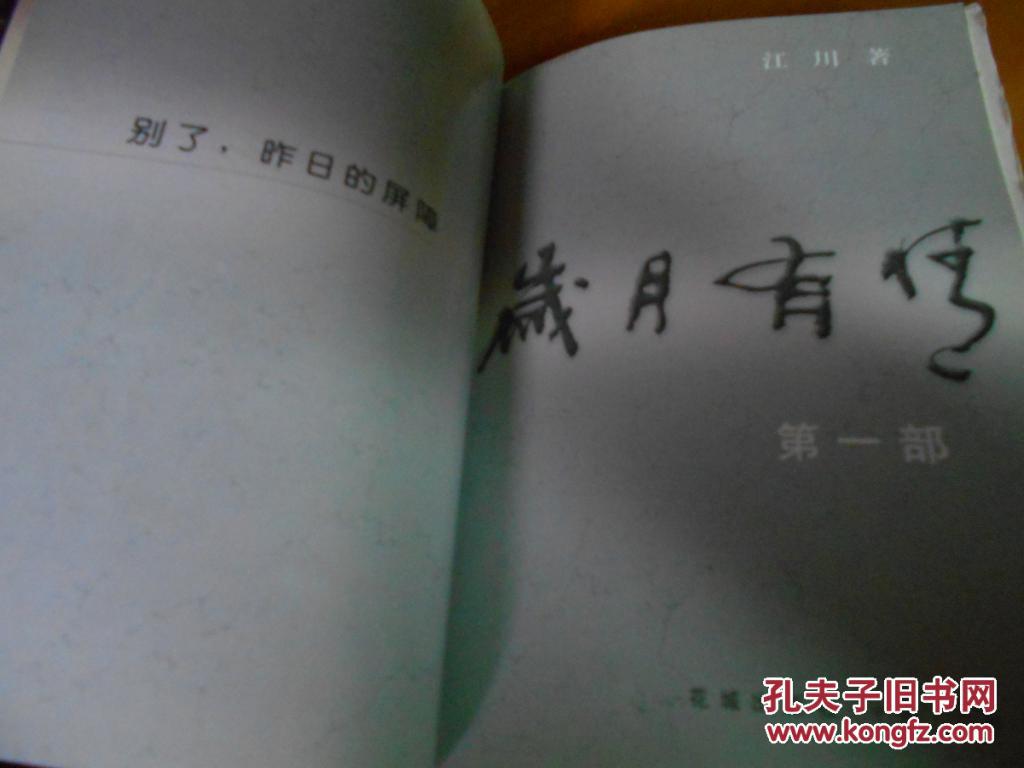 别了，昨日的屏障
江川 著
歲月有情
第一部
花城
孔夫子旧书网
www.kongfz.com